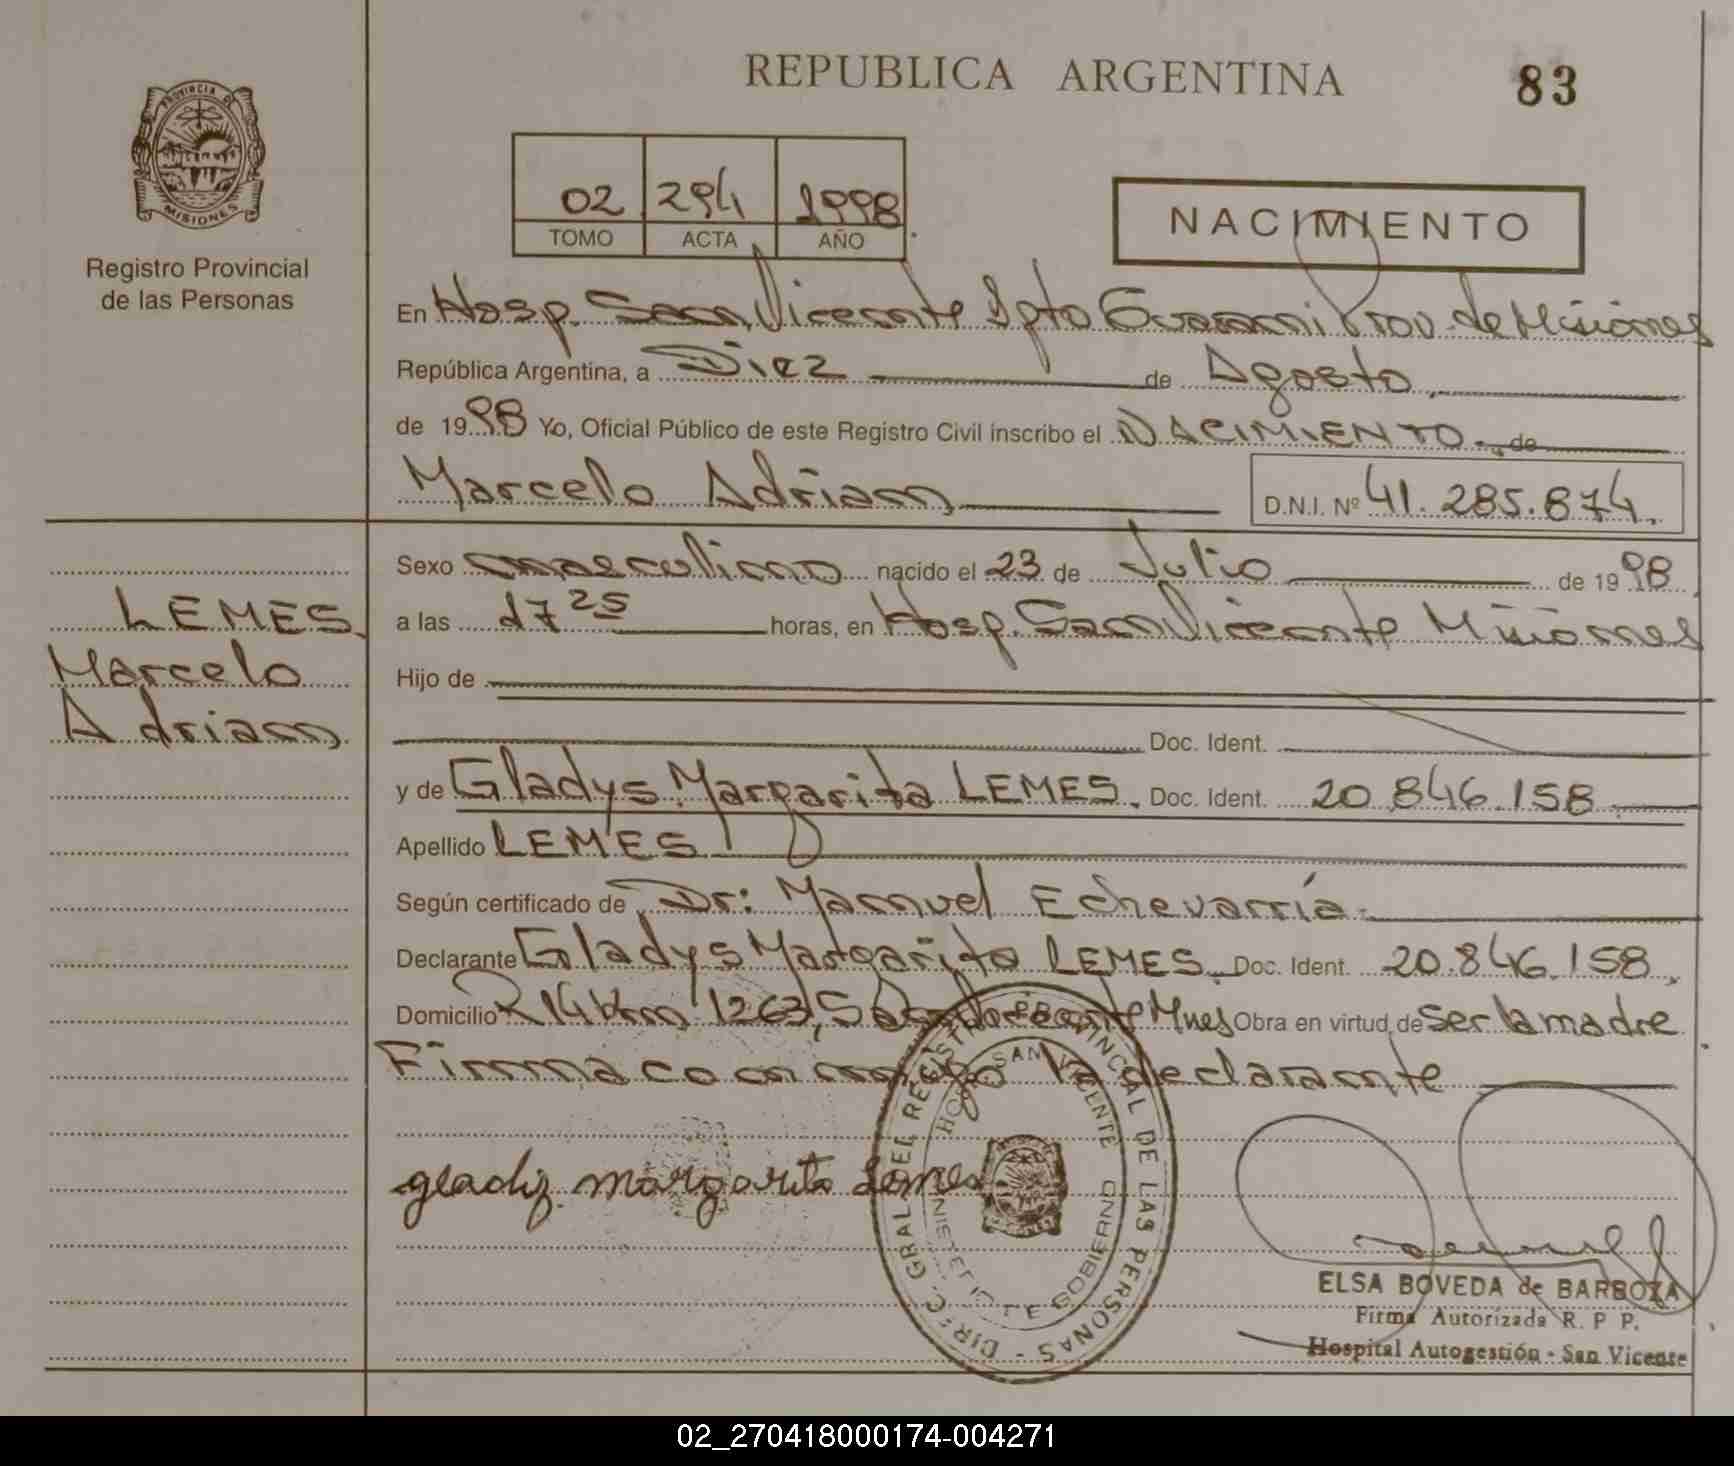 REPUBLICA ARGENTINA
83
PROVINCIA DE
MISIONES
Registro Provincial
de las Personas
02 294 1998
TOMO ACTA AÑO
NACIMIENTO
En Hosp. San Vicente Dpto Guarani Prov. de Misiones
República Argentina, a Diez de Agosto
de 1998 Yo, Oficial Público de este Registro Civil inscribo el NACIMIENTO. de
Marcelo Adrian D.N.I. Nº 41.285.874.
LEMES
Marcelo
Adrian
Sexo masculino nacido el 23 de Julio de 1998
a las 17 25 horas, en Hosp. San Vicente Misiones
Hijo de
Doc. Ident.
y de Gladys Margarita LEMES. Doc. Ident. 20.846.158
Apellido LEMES
Según certificado de Dr: Manuel Echevarría.
Declarante Gladys Margarita LEMES. Doc. Ident. 20.846.158
Domicilio R 14 Km 1263, San Vicente Mnes Obra en virtud de ser la madre
Firma conmigo la declarante
gladiz margarita Lemes
DIREC. GRAL. DEL REGISTRO PROVINCIAL DE LAS PERSONAS -
HOSP. SAN VICENTE
MINISTERIO DE GOBIERNO
ELSA BOVEDA de BARBOZA
Firma Autorizada R. P P.
Hospital Autogestión - San Vicente
02_270418000174-004271